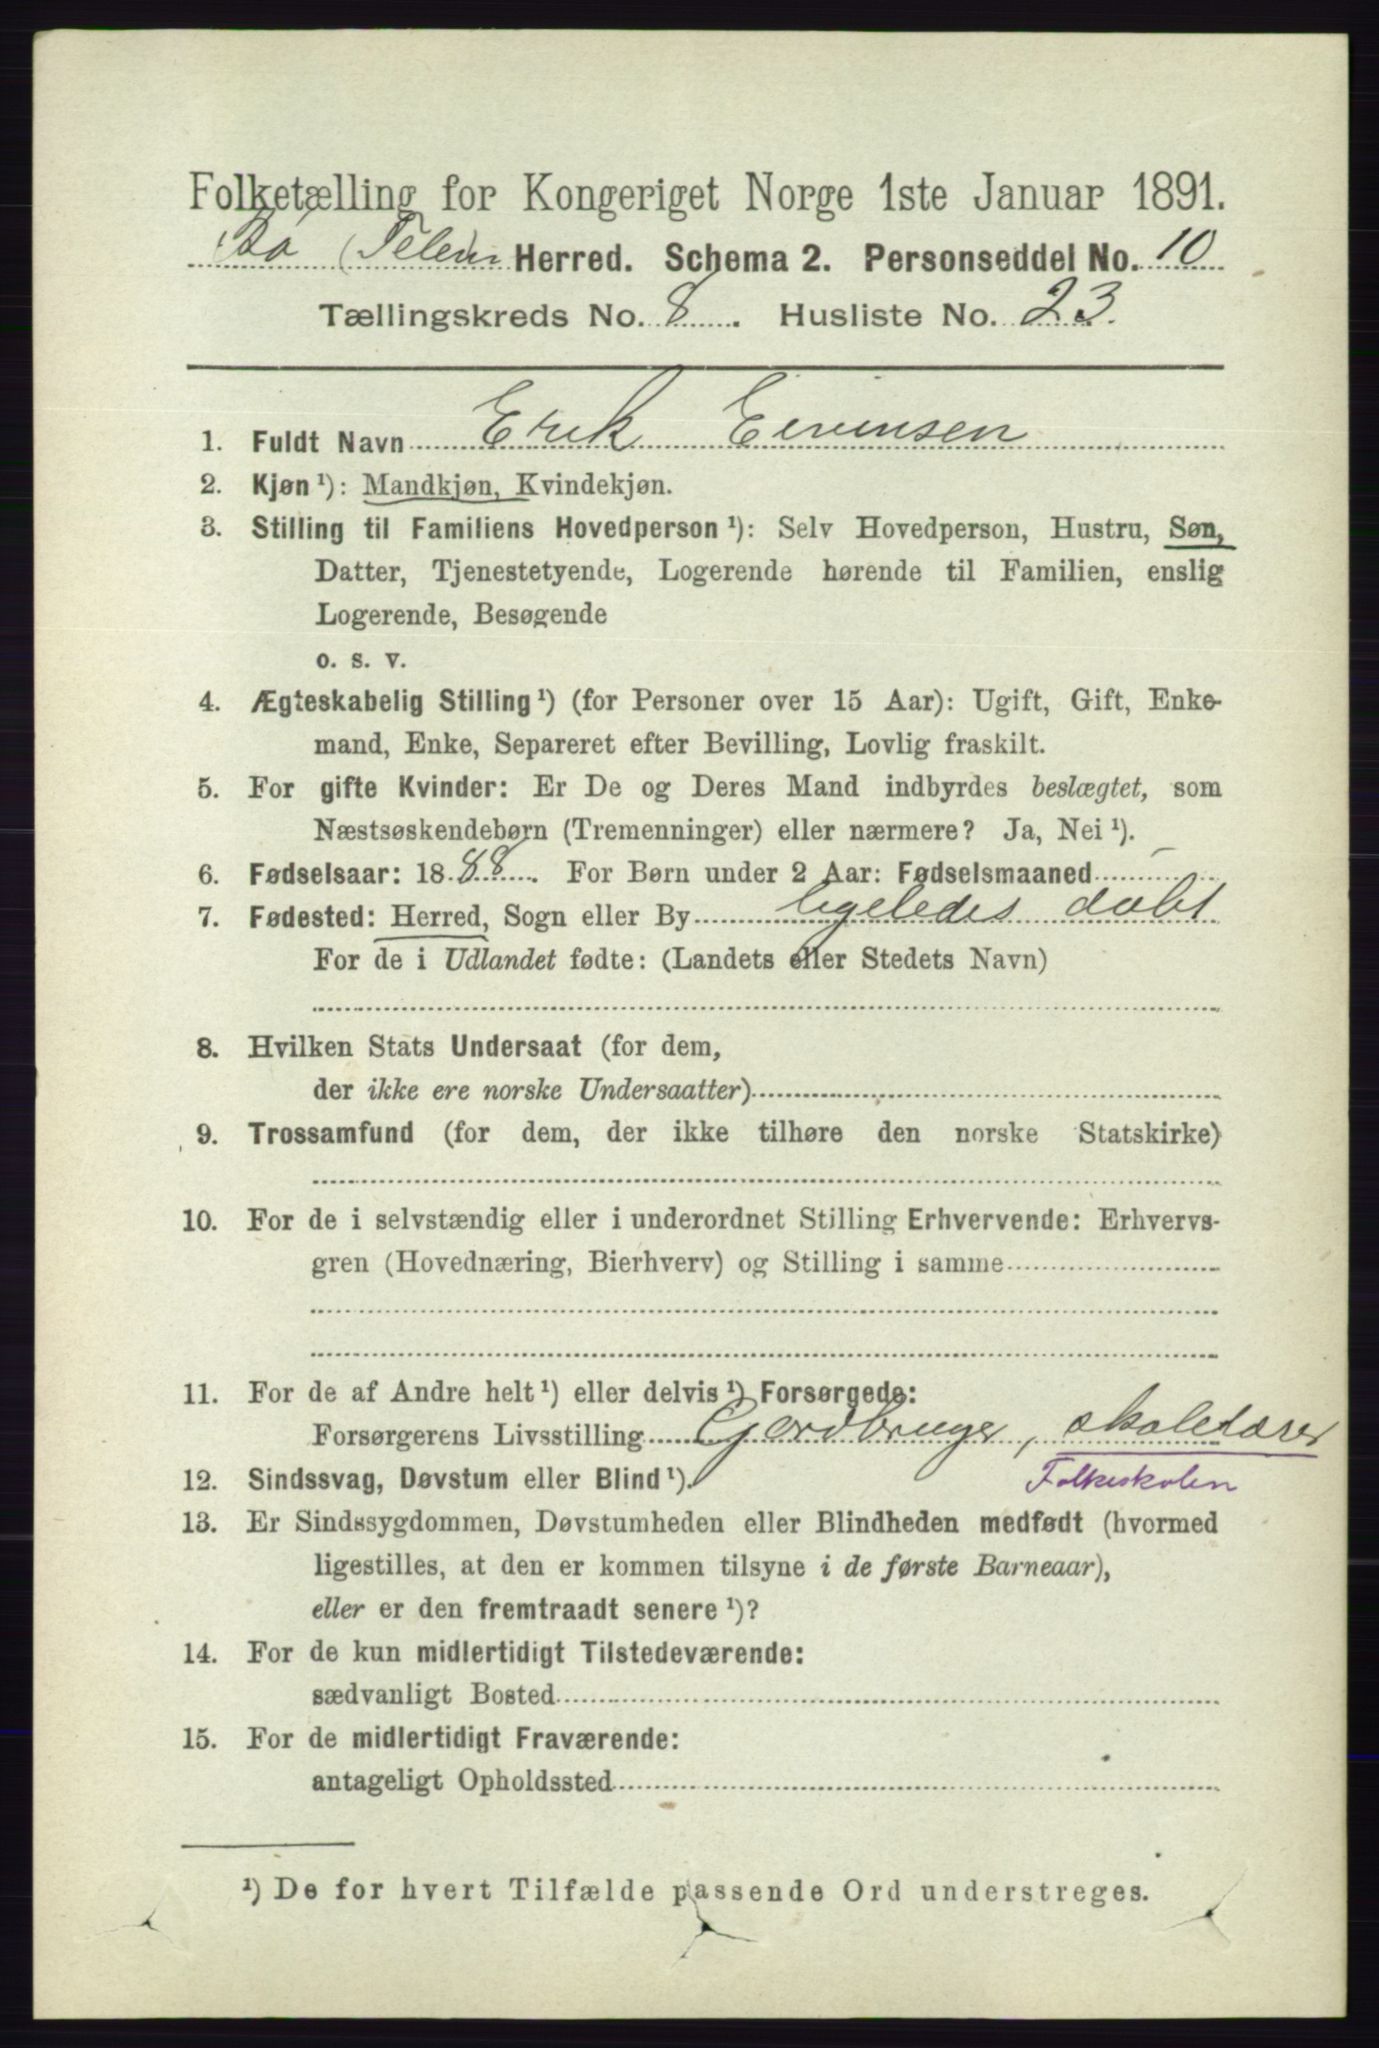 Folketælling for Kongeriget Norge 1ste Januar 1891.
Bø Telem Herred. Schema 2. Personseddel No. 10
Tællingskreds No. 8. Husliste No. 23.
1. Fuldt Navn Erik Eivinsen
2. Kjøn ¹): Mandkjøn, Kvindekjøn.
3. Stilling til Familiens Hovedperson ¹): Selv Hovedperson, Hustru, Søn,
Datter, Tjenestetyende, Logerende hørende til Familien, enslig
Logerende, Besøgende
o. s. v.
4. Ægteskabelig Stilling ¹) (for Personer over 15 Aar): Ugift, Gift, Enke-
mand, Enke, Separeret efter Bevilling, Lovlig fraskilt.
5. For gifte Kvinder: Er De og Deres Mand indbyrdes beslægtet, som
Næstsøskendebørn (Tremenninger) eller nærmere? Ja, Nei ¹).
6. Fødselsaar: 1888. For Børn under 2 Aar: Fødselsmaaned
7. Fødested: Herred, Sogn eller By ligeledes døbt
For de i Udlandet fødte: (Landets eller Stedets Navn)
8. Hvilken Stats Undersaat (for dem,
der ikke ere norske Undersaatter)
9. Trossamfund (for dem, der ikke tilhøre den norske Statskirke)
10. For de i selvstændig eller i underordnet Stilling Erhvervende: Erhvervs-
gren (Hovednæring, Bierhverv) og Stilling i samme
11. For de af Andre helt ¹) eller delvis ¹) Forsørgede:
Forsørgerens Livsstilling Gjordbruger, skolelærer
12. Sindssvag, Døvstum eller Blind ¹). Folkeskolen
13. Er Sindssygdommen, Døvstumheden eller Blindheden medfødt (hvormed
ligestilles, at den er kommen tilsyne i de første Barneaar),
eller er den fremtraadt senere ¹)?
14. For de kun midlertidigt Tilstedeværende:
sædvanligt Bosted
15. For de midlertidigt Fraværende:
antageligt Opholdssted
¹) De for hvert Tilfælde passende Ord understreges.